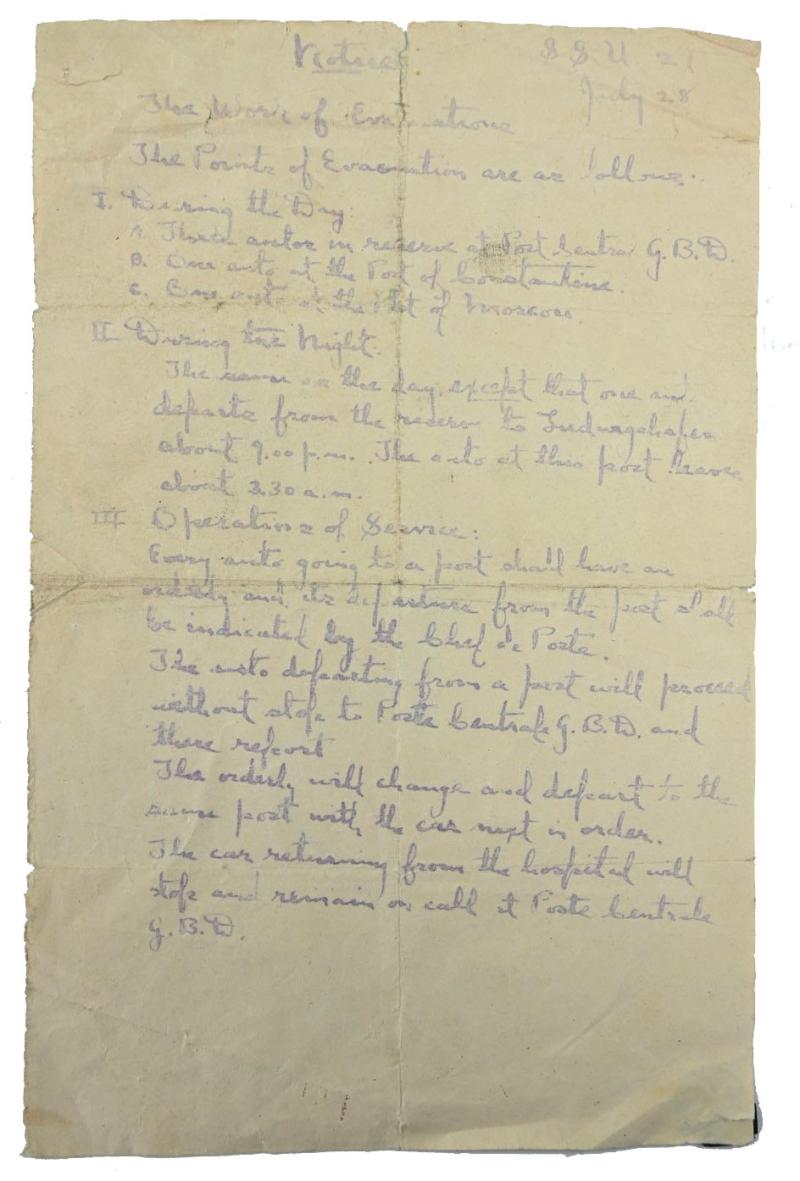 Notice S S U 21
July 28
The Work of Evacuations
The Points of Evacuation are as follows.
I. During the Day:
A. Three autos in reserve at Post Central G. B. D.
B. One auto at the Post of Constantine.
C. One auto at the Post of Moscou.
II During the Night.
The same as the day, except that one auto
departs from the reserve to Ludwigshafen
about 9.00 p.m. The auto at this post leaves
about 3.30 a.m.
III Operations of Service:
Every auto going to a post shall have an
orderly and its departure from the post shall
be indicated by the Chef de Poste.
The auto departing from a post will proceed
without stop to Poste Centrale G. B. D. and
there report
The orderly will change and depart to the
same post with the car next in order.
The car returning from the hospital will
stop and remain on call at Poste Centrale
G. B. D.